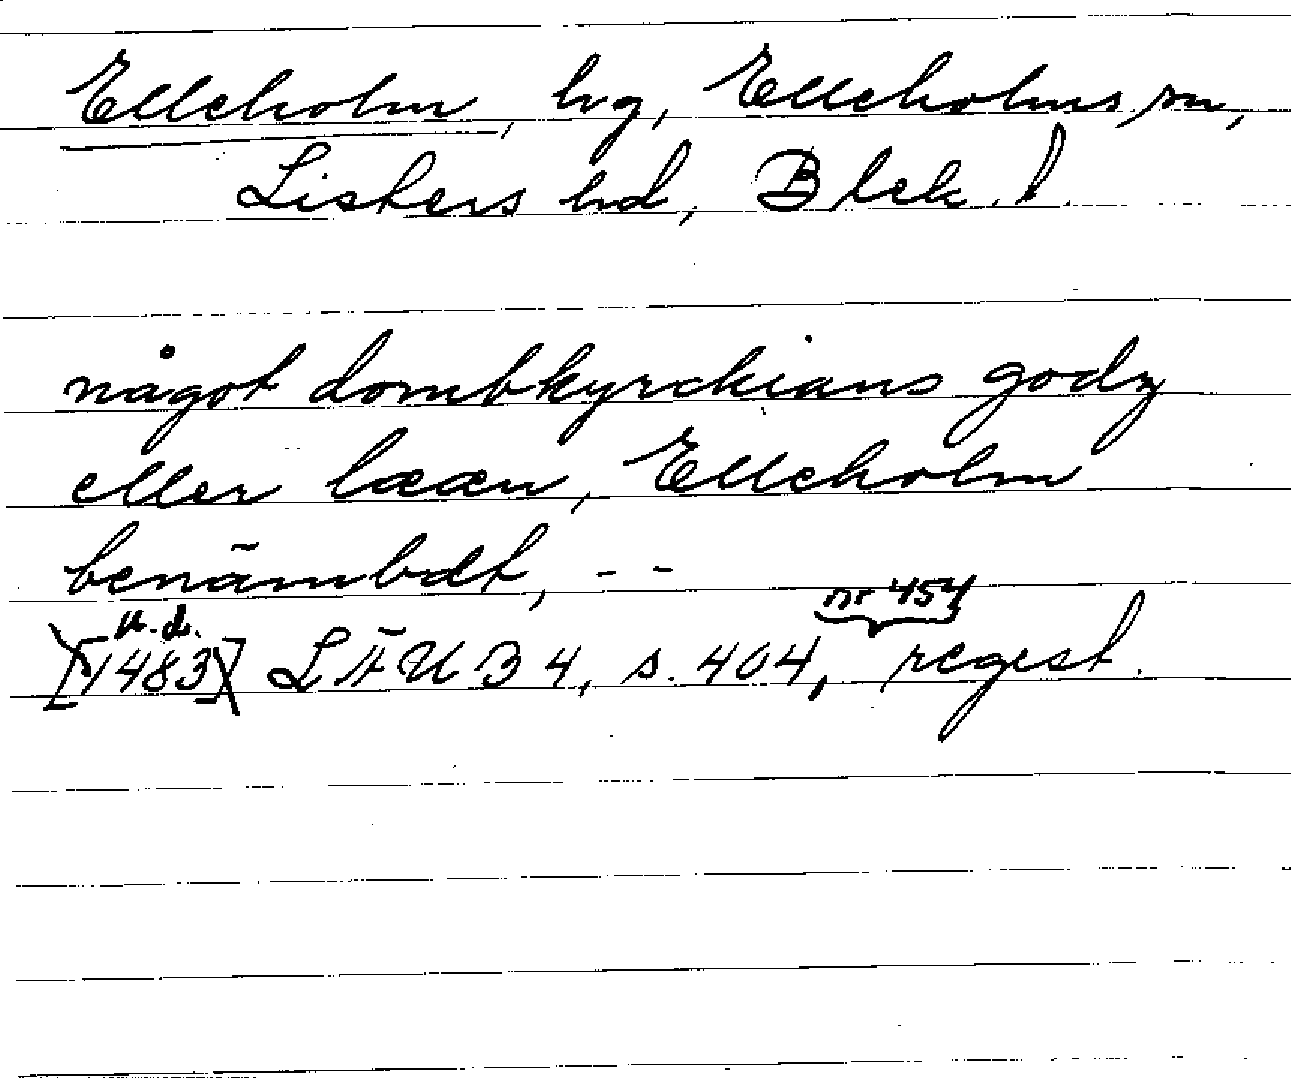 Elleholm, hg, Elleholms sn,
Listers hd, Blek. l.
något dombkyrckians godz
eller lææn, Elleholm
benämbdt, --
u. d. nr 454
[1483] LÄUB 4, s. 404, regest.